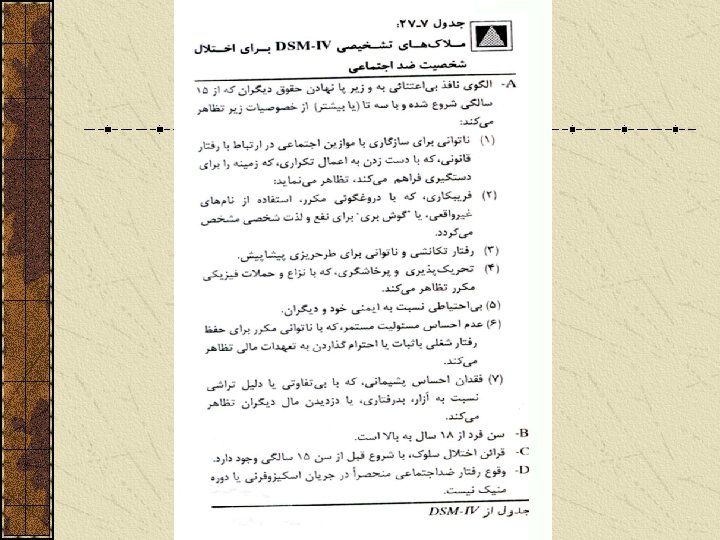 جدول ۷ـ۲۷:
مـلاک‌هـای تشـخیصی DSM-IV بـرای اخـتلال
شخصیت ضد اجتماعی
A- الگوی نافذ بی‌اعتنائی به و زیر پا نهادن حقوق دیگران که از ۱۵
سالگی شروع شده و با سه تا (یا بیشتر) از خصوصیات زیر تظاهر
می‌کند:
(۱) ناتوانی برای سازگاری با موازین اجتماعی در ارتباط با رفتار
قانونی، که با دست زدن به اعمال تکراری، که زمینه را برای
دستگیری فراهم می‌کند، تظاهر می‌نماید:
(۲) فریبکاری، که با دروغگوئی مکرر، استفاده از نام‌های
غیرواقعی، یا "گوش بری" برای نفع و لذت شخصی مشخص
می‌گردد.
(۳) رفتار تکانشی و ناتوانی برای طرحریزی پیشاپیش.
(۴) تحریک‌پذیری و پرخاشگری، که با نزاع و حملات فیزیکی
مکرر تظاهر می‌کند.
(۵) بی‌احتیاطی نسبت به ایمنی خود و دیگران.
(۶) عدم احساس مسئولیت مستمر، که با ناتوانی مکرر برای حفظ
رفتار شغلی باثبات یا احترام گذاردن به تعهدات مالی تظاهر
می‌کند.
(۷) فقدان احساس پشیمانی، که با بی‌تفاوتی یا دلیل تراشی
نسبت به آزار، بدرفتاری، یا دزدیدن مال دیگران تظاهر
می‌کند.
B- سن فرد از ۱۸ سال به بالا است.
C- قرائن اختلال سلوک، با شروع قبل از سن ۱۵ سالگی وجود دارد.
D- وقوع رفتار ضداجتماعی منحصراً در جریان اسکیزوفرنی یا دوره
منیک نیست.
جدول از DSM-IV